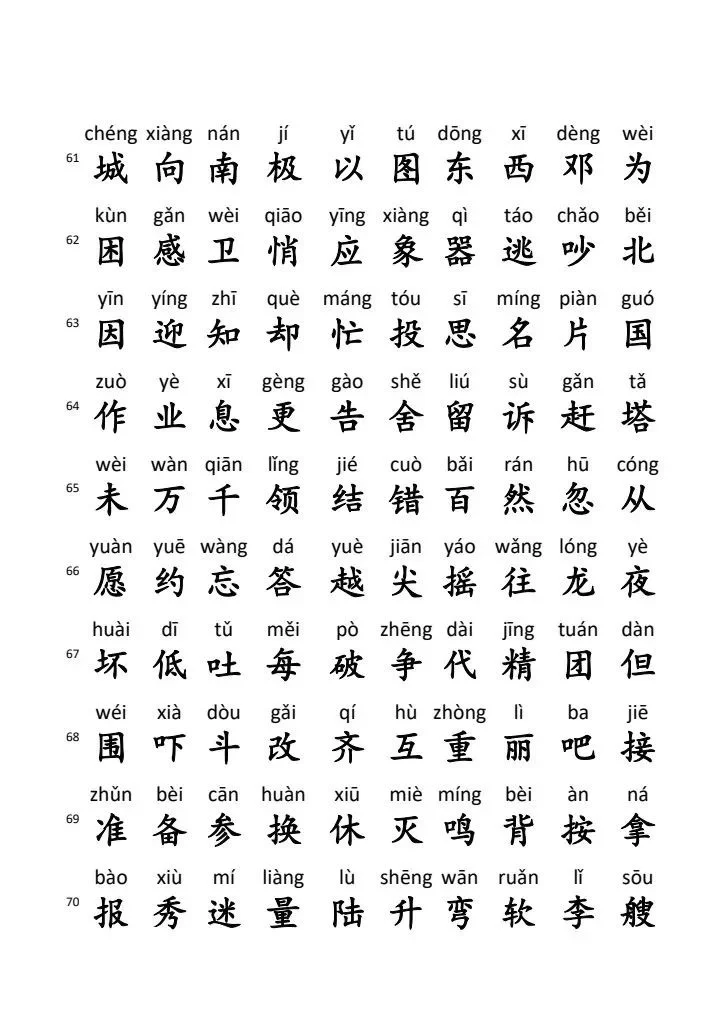 chéng xiàng nán jí yǐ tú dōng xī dèng wèi
61 城 向 南 极 以 图 东 西 邓 为
kùn gǎn wèi qiāo yīng xiàng qì táo chǎo běi
62 困 感 卫 悄 应 象 器 逃 吵 北
yīn yíng zhī què máng tóu sī míng piàn guó
63 因 迎 知 却 忙 投 思 名 片 国
zuò yè xī gèng gào shě liú sù gǎn tǎ
64 作 业 息 更 告 舍 留 诉 赶 塔
wèi wàn qiān lǐng jié cuò bǎi rán hū cóng
65 未 万 千 领 结 错 百 然 忽 从
yuàn yuē wàng dá yuè jiān yáo wǎng lóng yè
66 愿 约 忘 答 越 尖 摇 往 龙 夜
huài dī tǔ měi pò zhēng dài jīng tuán dàn
67 坏 低 吐 每 破 争 代 精 团 但
wéi xià dòu gǎi qí hù zhòng lì ba jiē
68 围 吓 斗 改 齐 互 重 丽 吧 接
zhǔn bèi cān huàn xiū miè míng bèi àn ná
69 准 备 参 换 休 灭 鸣 背 按 拿
bào xiù mí liàng lù shēng wān ruǎn lǐ sōu
70 报 秀 迷 量 陆 升 弯 软 李 艘